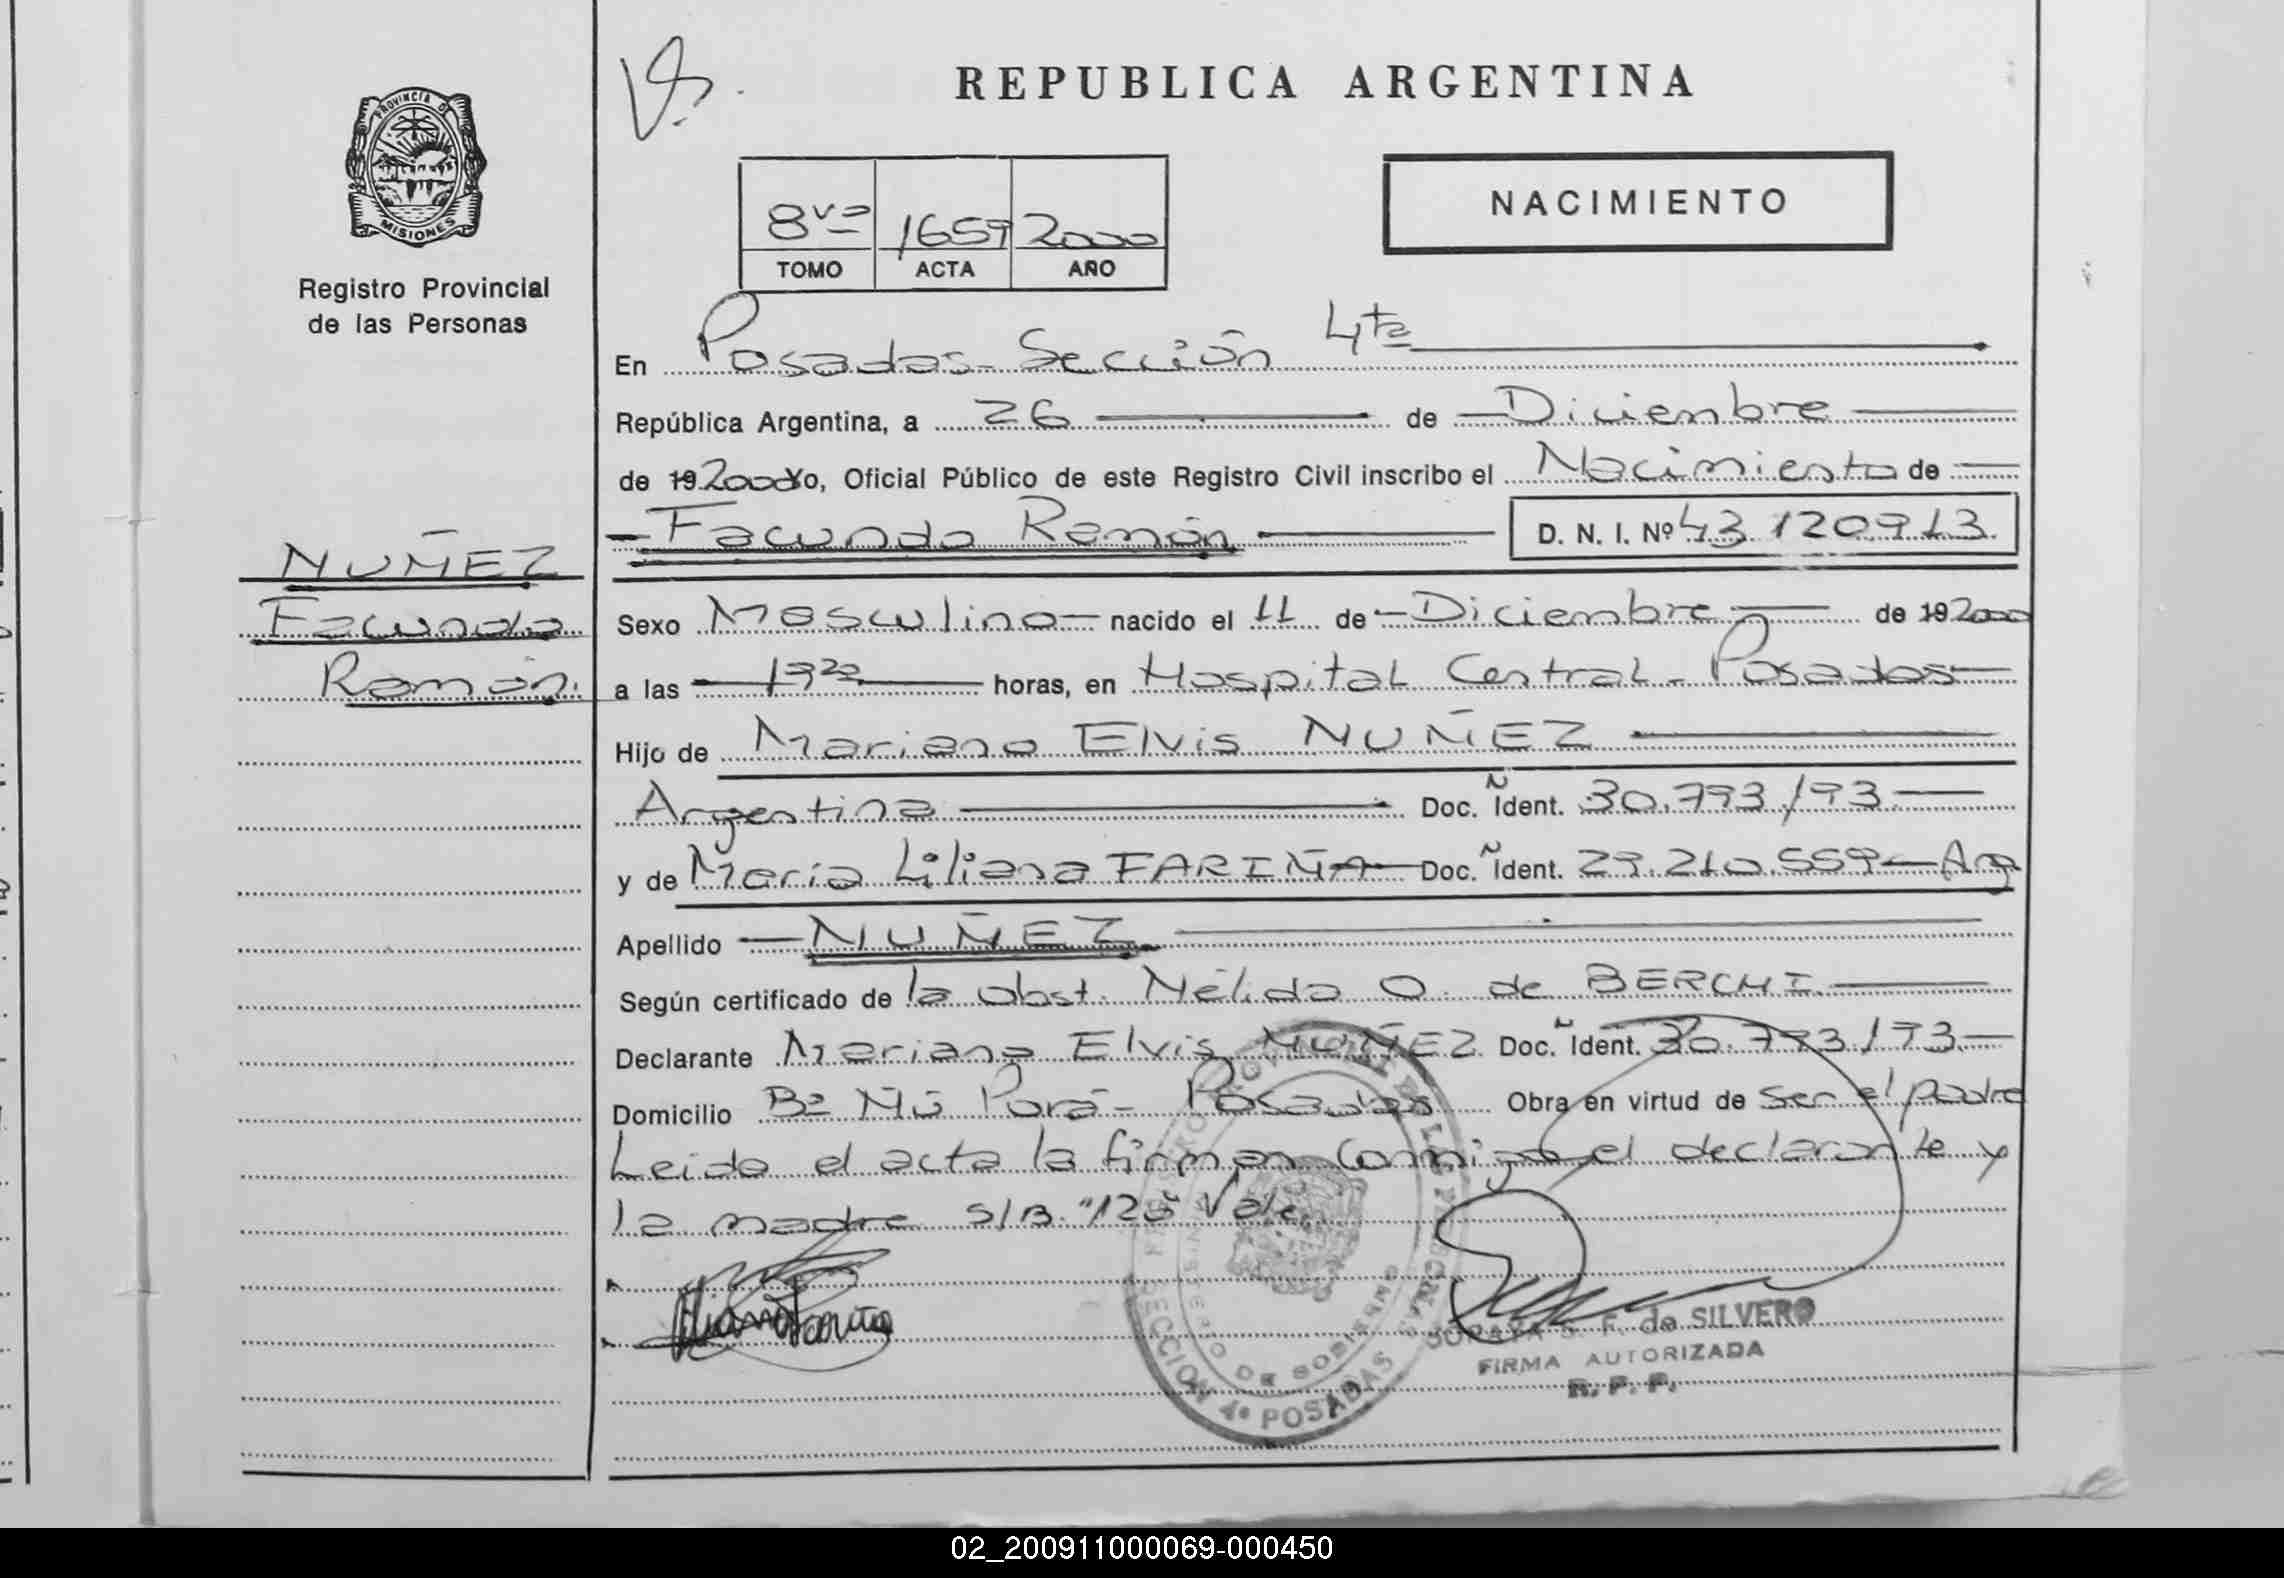 REPUBLICA ARGENTINA
PROVINCIA DE
MISIONES
Registro Provincial
de las Personas
NACIMIENTO
8vo 1659 2000
TOMO ACTA AÑO
En Posadas - Sección 4ta
República Argentina, a 26 de Diciembre
de 19 2000 Yo, Oficial Público de este Registro Civil inscribo el Nacimiento de
Facundo Ramón D. N. I. Nº 43.120.913
NUÑEZ
Facundo
Ramón.
Sexo Masculino nacido el 11 de Diciembre de 19 2000
a las horas, en Hospital Central - Posadas
Hijo de Mariano Elvis NUÑEZ
Argentina Doc. Ident. 30.793.193
y de María Liliana FARIÑA Doc. Ident. 29.210.559 - Arg
Apellido NUÑEZ
Según certificado de la obst. Nélida O. de BERCHI.
Declarante Mariano Elvis NUÑEZ Doc. Ident. 30.793.193
Domicilio Bº Ñú Porá - Posadas Obra en virtud de ser el padre
Leida el acta la firman conmigo el declarante y
la madre S/B. "125" Vale.
SECCION 4ª POSADAS
MINISTERIO DE GOBIERNO
S. F. de SILVERO
FIRMA AUTORIZADA
R. P. P.
02_200911000069-000450